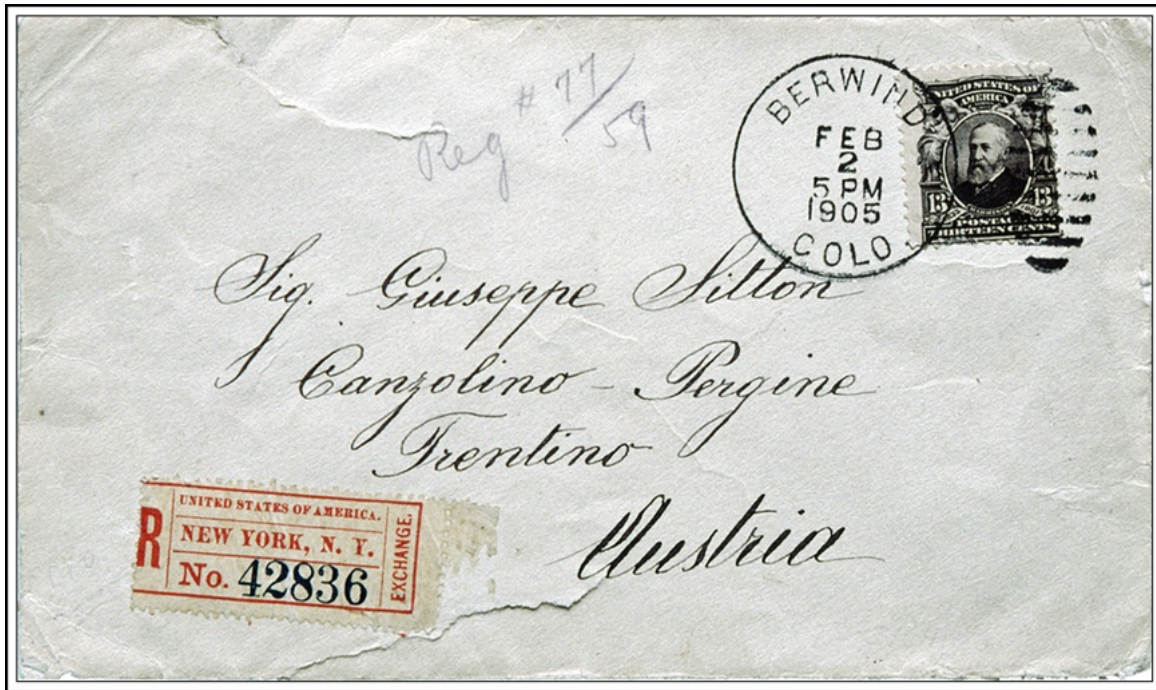 Reg # 77/59
BERWIND
FEB
2
5 PM
1905
COLO.
UNITED STATES OF
AMERICA
13 HARRISON 13
POSTAGE
THIRTEEN CENTS
Sig. Giuseppe Sitton
Canzolino - Pergine
Trentino
Austria
R
UNITED STATES OF AMERICA.
NEW YORK, N. Y.
No. 42836
EXCHANGE.